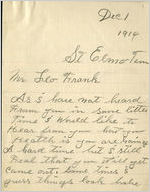 Dec 1
1914
St Elmo Tenn
Mr Leo Frank
As I have not heard
From you in some little
Time I Would like to
Hear from you but your
Health is you are having
A hard time but I still
Feal that you still get
Came out some times I
guess things look like